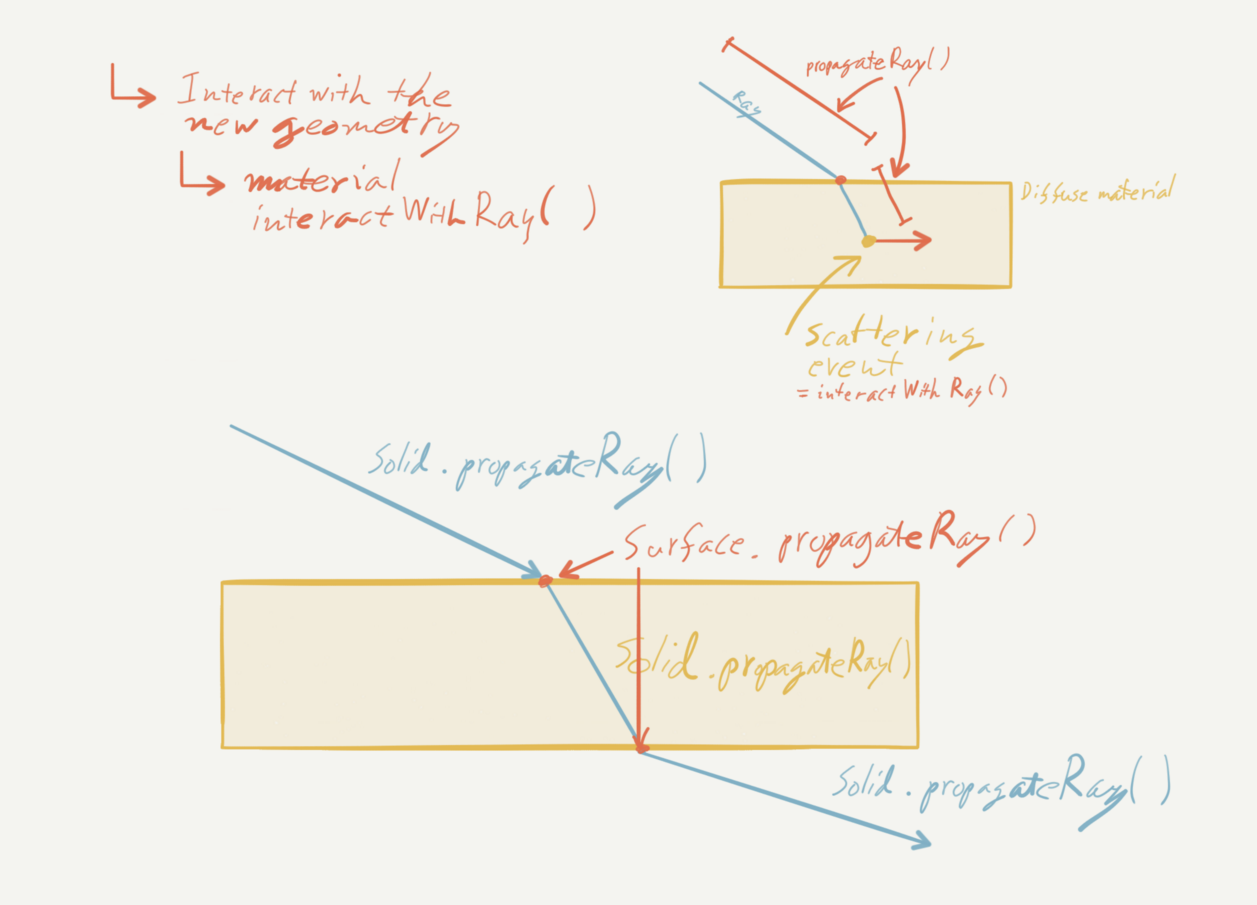 Interact with the
new geometry
material
interactWithRay( )
propagateRay()
Ray
Diffuse material
Scattering
event
= interactWithRay()
Solid.propagateRay( )
Surface.propagateRay()
Solid.propagateRay()
Solid.propagateRay( )